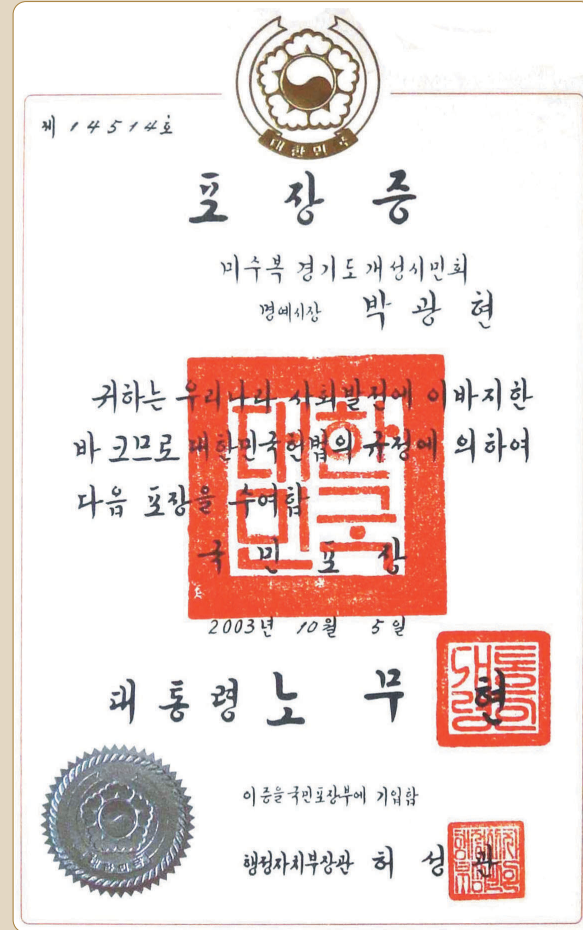 대한민국
제 14514호
포 장 증
미수복 경기도 개성시민회
명예시장 박 광 현
귀하는 우리나라 사회발전에 이바지한
바 크므로 대한민국헌법의 규정에 의하여
다음 포장을 수여함
국 민 포 장
2003년 10월 5일
대통령 노 무 현
이 증을 국민포장부에 기입함
행정자치부장관 허 성 관
대한민국